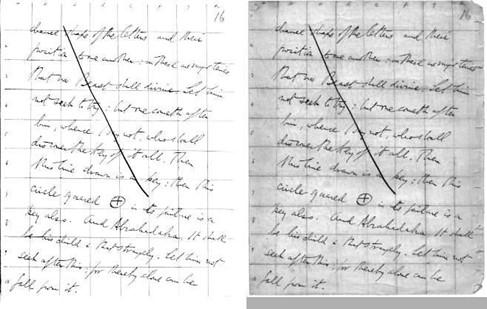 16
chance shape of the letters and their
position to one another: in these are mysteries
that no Beast shall divine. Let him
not seek to try: but one cometh after
him, whence I say not, who shall
discover the Key of it all. Then
this line drawn is a key: then this
circle squared in its failure is a
key also. And Abrahadabra. It shall
be his child & that strangely. Let him not
seek after this; for thereby alone can he
fall from it.
16
chance shape of the letters and their
position to one another: in these are mysteries
that no Beast shall divine. Let him
not seek to try: but one cometh after
him, whence I say not, who shall
discover the Key of it all. Then
this line drawn is a key: then this
circle squared in its failure is a
key also. And Abrahadabra. It shall
be his child & that strangely. Let him not
seek after this; for thereby alone can he
fall from it.